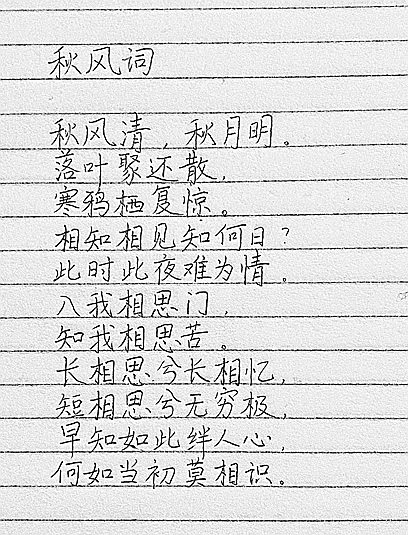 秋风词
秋风清，秋月明。
落叶聚还散，
寒鸦栖复惊。
相知相见知何日？
此时此夜难为情。
入我相思门，
知我相思苦。
长相思兮长相忆，
短相思兮无穷极，
早知如此绊人心，
何如当初莫相识。